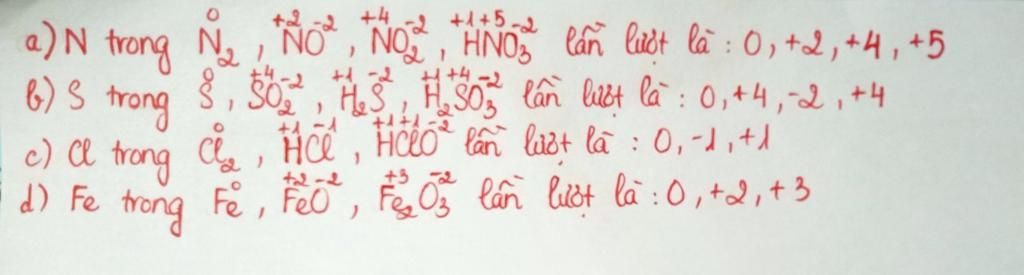 a) N trong N⁰₂, N⁺²O⁻², N⁺⁴O₂⁻², H⁺¹N⁺⁵O₃⁻² lần lượt là : 0, +2, +4, +5
b) S trong S⁰, S⁺⁴O₂⁻², H₂⁺¹S⁻², H₂⁺¹S⁺⁴O₃⁻² lần lượt là : 0, +4, -2, +4
c) Cl trong Cl⁰₂, H⁺¹Cl⁻¹, H⁺¹Cl⁺¹O⁻² lần lượt là : 0, -1, +1
d) Fe trong Fe⁰, Fe⁺²O⁻², Fe₂⁺³O₃⁻² lần lượt là : 0, +2, +3